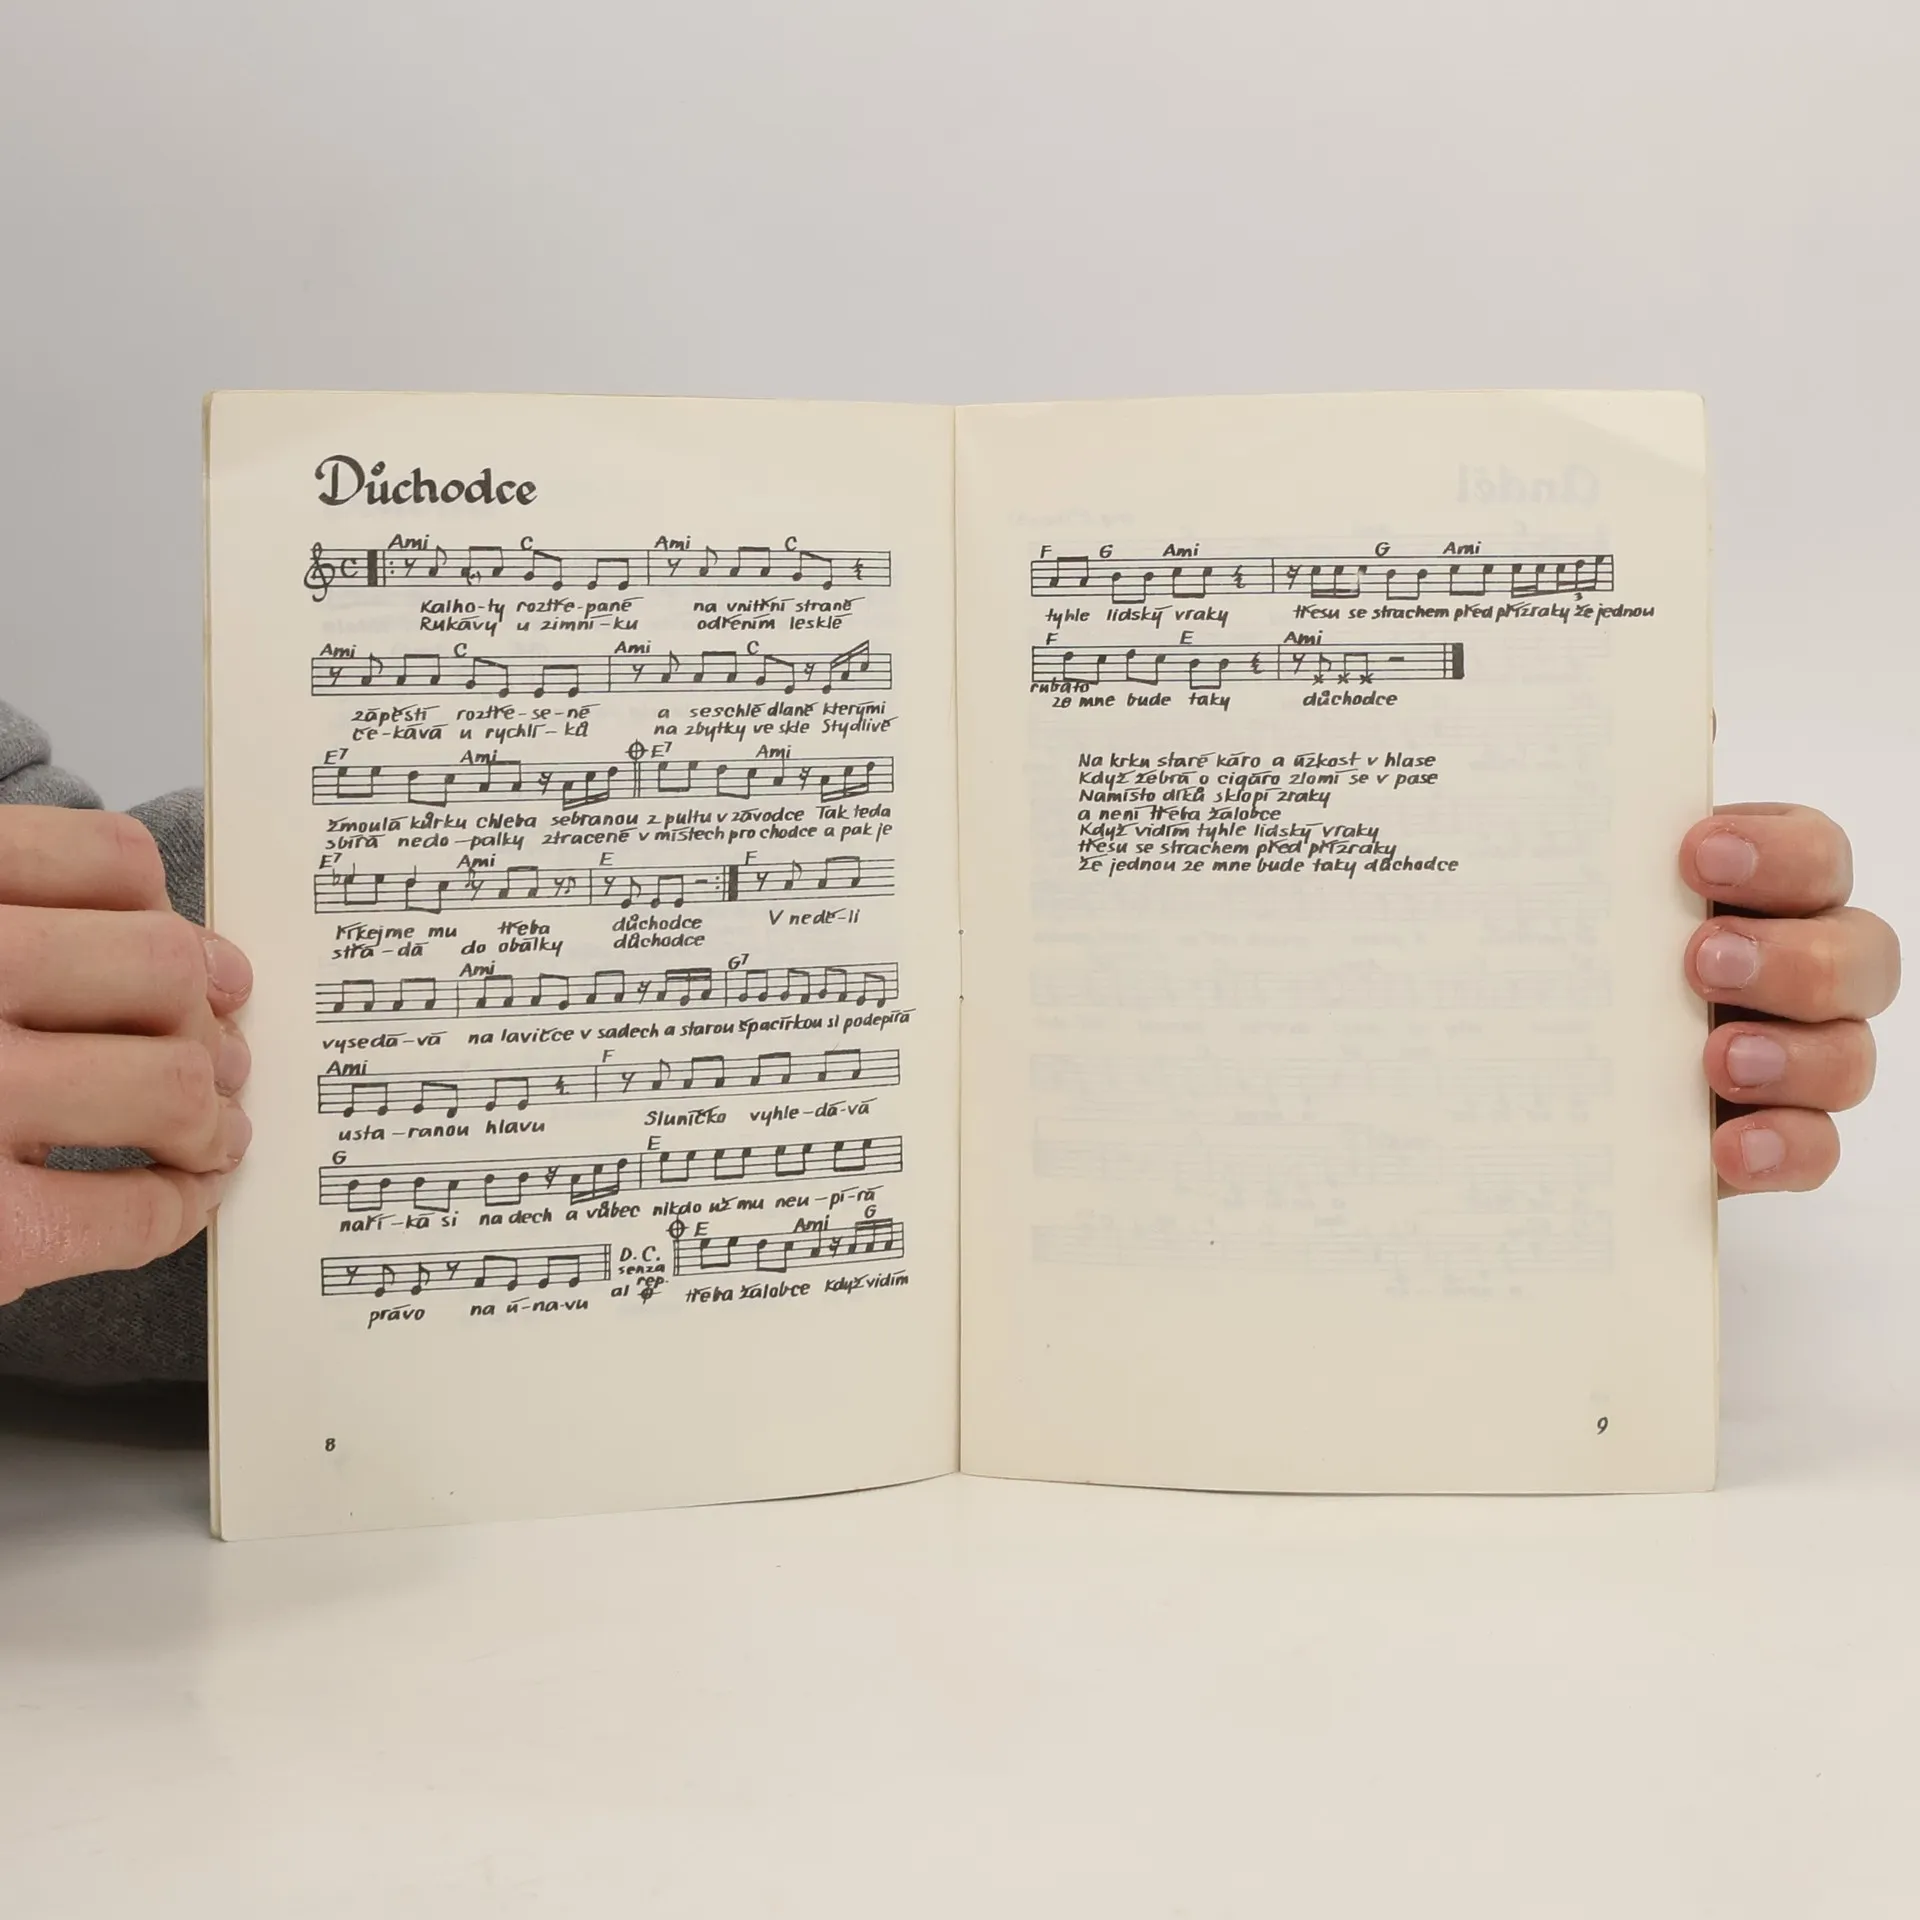 Důchodce
Ami C Ami C
Kalho-ty roztře-pané na vnitřní straně
Rukávy u zimní-ku odřením lesklé
Ami C Ami C
zápěstí roztře-se-né a seschlé dlaně kterými
če-kává u rychlí-ků na zbytky ve skle Stydlivě
E7 Ami E7 Ami
žmoulá kůrku chleba sebranou z pultu v závodce Tak teda
sbírá nedo-palky ztracené v místech pro chodce a pak je
E7 Ami E F
říkejme mu třeba důchodce V nedě-li
střá-dá do obálky důchodce
Ami G7
vysedá-vá na lavičce v sadech a starou špacírkou si podepírá
Ami F
usta-ranou hlavu Sluníčko vyhle-dá-vá
G E
naří-ká si na dech a vůbec nikdo už mu neu-pí-rá
D.C. senza rep. al E Ami G
právo na ú-na-vu třeba žalobce Když vidím
8
F G Ami G Ami
3
tyhle lidský vraky třesu se strachem před přízraky že jednou
F E Ami
rubato
ze mne bude taky důchodce
Na krku staré káro a úzkost v hlase
Když žebrá o cigáro zlomí se v pase
Namísto díků sklopí zraky
a není třeba žalobce
Když vidím tyhle lidský vraky
třesu se strachem před přízraky
že jednou ze mne bude taky důchodce
9